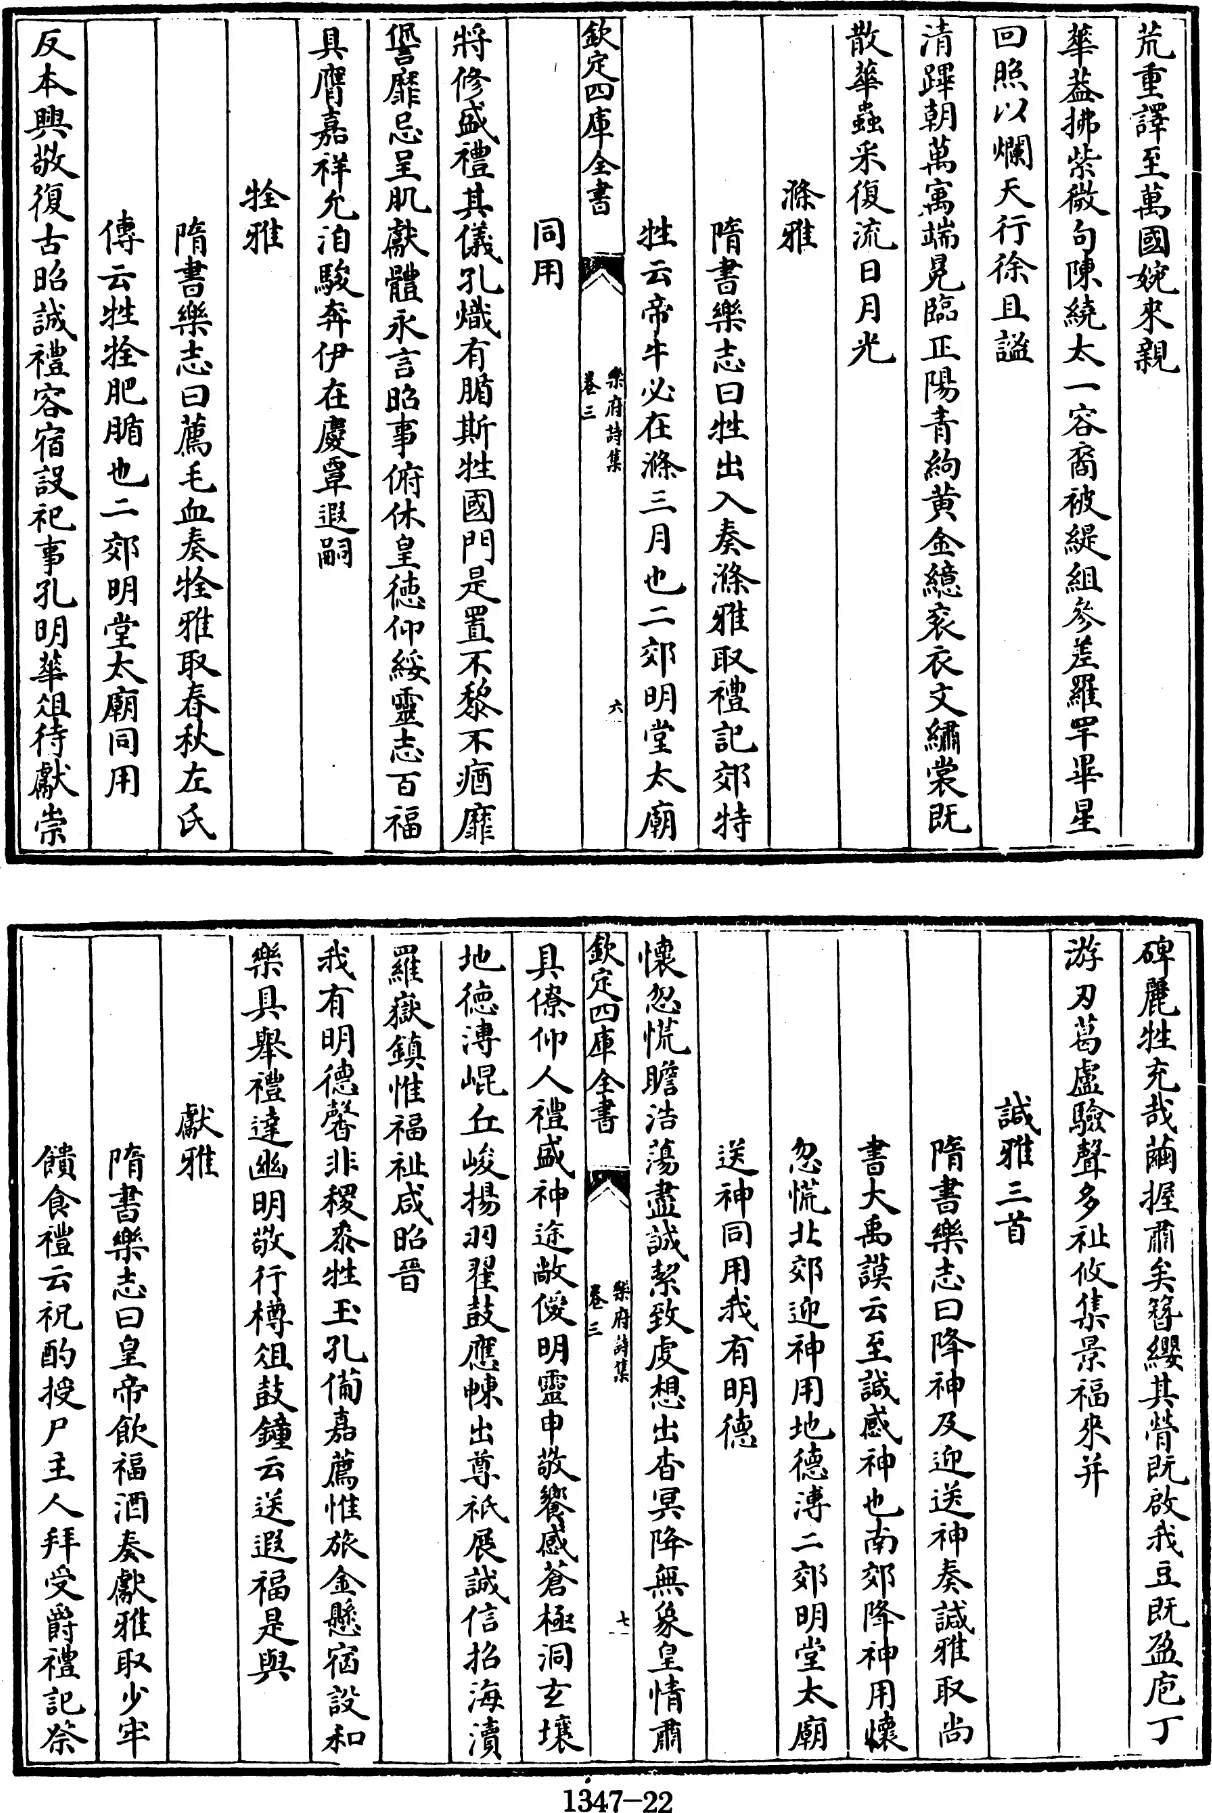 荒重譯至萬國婉來親
華葢拂紫微句陳繞太一容裔被緹組參差羅罕畢星
回照以爛天行徐且謐
清蹕朝萬㝢端冕臨正陽青絇黃金繶袞衣文繡裳既
散華蟲采復流日月光
滌雅
隋書樂志曰牲出入奏滌雅取禮記郊特
牲云帝牛必在滌三月也二郊明堂太廟
欽定四庫全書
樂府詩集
卷三
六
同用
將修盛禮其儀孔熾有腯斯牲國門是置不黎不𤺄靡
諐靡忌呈肌獻體永言昭事俯休皇德仰綏靈志百福
具膺嘉祥允洎駿奔伊在慶覃遐嗣
牷雅
隋書樂志曰薦毛血奏牷雅取春秋左氏
傳云牲牷肥腯也二郊明堂太廟同用
反本興敬復古昭誠禮容宿設祀事孔明華俎待獻崇
碑麗牲充哉繭握肅矣簪纓其膋既啟我豆既盈庖丁
游刃葛盧驗聲多祉攸集景福來并
諴雅三首
隋書樂志曰降神及迎送神奏諴雅取尚
書大禹謨云至諴感神也南郊降神用懷
忽慌北郊迎神用地德溥二郊明堂太廟
送神同用我有明德
懷忽慌瞻浩蕩盡誠絜致虔想出杳冥降無象皇情肅
欽定四庫全書
樂府詩集
卷三
七
具僚仰人禮盛神途敞僾明靈申敬饗感蒼極洞玄壤
地德溥崐丘峻揚羽翟鼓應朄出尊祇展誠信招海瀆
羅嶽鎮惟福祉咸昭晉
我有明德馨非稷黍牲玉孔備嘉薦惟旅金懸宿設和
樂具舉禮達幽明敬行樽俎鼓鐘云送遐福是與
獻雅
隋書樂志曰皇帝飲福酒奏獻雅取少牢
饋食禮云祝酌授尸主人拜受爵禮記祭
1347-22